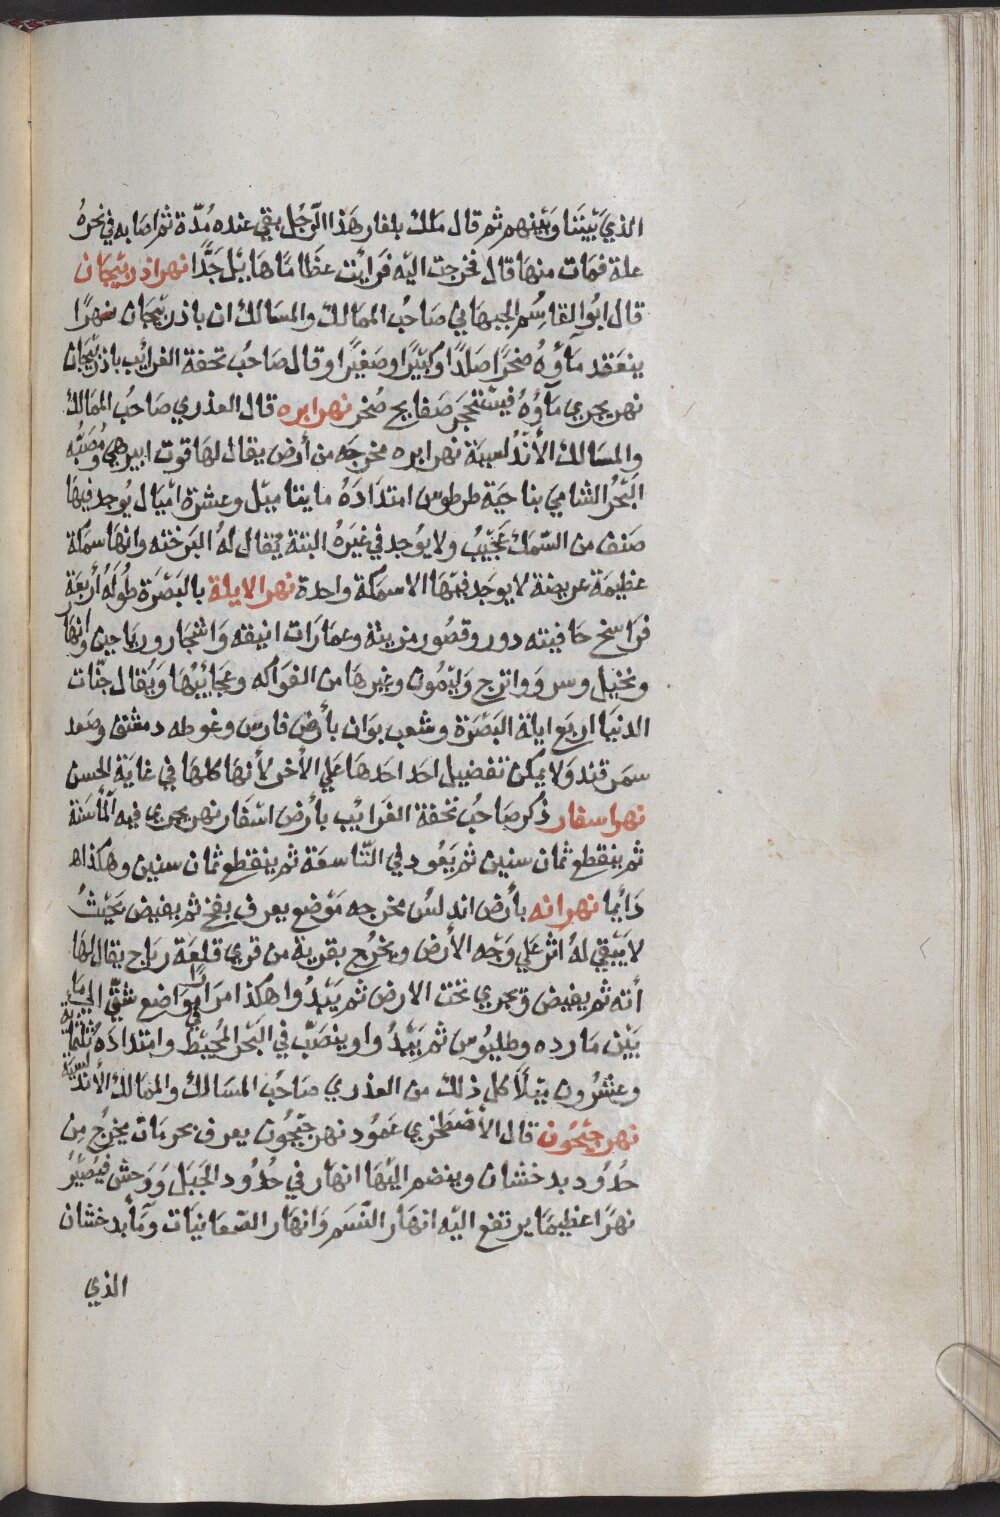 الذي بَيْنَنا وَبَيْنهم ثم قال مَلك بلغار هَذا الرّجُل بقي عنده مُدّة ثم اصَابه في نحرهُ
علة فمات منهَا قال فخرجت اليْه فَرايْت عظَامًا هَايَلَ جَدًّا نهر اذربيَجَان
قال ابُو القاسِم الجيهَاني صَاحبُ الممَالك والمسَالك ان باذربَيجَان نهرًا
ينعَقد مَآؤهُ صَخرًا صَلدًا وكَبيَرًا وصَغيرًا وقال صَاحبُ تحفة الغرائِب باذربَيجَان
نهر يجري مَآؤهُ فيسْتَحجَر صَفَايح صُخر نهر ابره قال العذري صَاحبُ الممَالك
والمسَالك الأنْدُلسيَة نهر ابره مخرجَه من أرْض يقال لهَا قوت ابيرهي ومُصَبُّه
البَحْر الشامي بناحَيَة طرطوس امتدَادَهُ مايتا ميْل وعشرة امْيَال يُوجد فيهَا
صَنف من السّمَك عَجيْبُ ولا يُوجد في غيَرهُ البتة يُقال لهُ البَرخته وانهَا سمَكة
عظيمَة عريضة لا يوجَد فيْهَا الا سمَكة واحدة نهر الايلة بالبَصْرَة طُولَهُ أرْبَعَة
فرَاسخ حَافيته دور وقصُور مزينة وعمَارَات انيقه وَاشْجَار وريَاحين وانهَار
ونخيْل وسروَ واترج وَليْمُون وغيرهَا من الفوَاكه وعجَائبُهَا وَيُقال جنّات
الدنيَا اربَع ايلة البَصْرَة وشعب بوَان بأرْض فارس وغوطه دمشق وصَعد
سمَرقند وَلا يمكن تفضيل احَد احَدهَا عَلي الأخر لأنهَا كلهَا في غايَة الحسن
نهر اسفار ذُكر صَاحبُ تخفة الغرَائِب بأرْض اسْفَار نهر يجري فيه المآءَ سَنة
ثم ينقطع ثمان سنين ثم يَعُود في التّاسعَة ثم ينقطع ثمان سنين وهكذاه
دَائِما نهر انه بأرْض اندلسُ مخرجه مَوْضع يعرف بفخ ثم يغيض بحَيْثُ
لا يَبْقي لهُ اثر عَلي وَجْه الأرْض ويخْرُج بقرية من قري قلعَة ربَاح يقال لهَا
أنه ثم يغيض وَيجري تحت الارض ثم يَبْدُوا هكذا مرَارًا في مَوَاضع شتّي الي مَا
بَيْن مَارده وطليُوسَ ثم يَبْدُ وا وينصَبّ في البَحْر المُحيْط وامتدَادَه ثلثمَايَة
وعشرُون ميْلًا كل ذلك من العذري صَاحبُ المسَالك والممَالك الأندُلسيَة
نهر جَيْحُون قال الأصْطخري عمُود نهر جَيْجُون يعرف بحريَات يخرُج مِن
حدُود بدخشان وينضم اليْهَا انهَار في حدُود الجَبَل وَوَحش فيَصْيَرُ
نهرًا عظيمًا يرتفع اليْه انهَار النَسَم وَانهار الصّغَانيَات وَمَأبدخشان
الذي